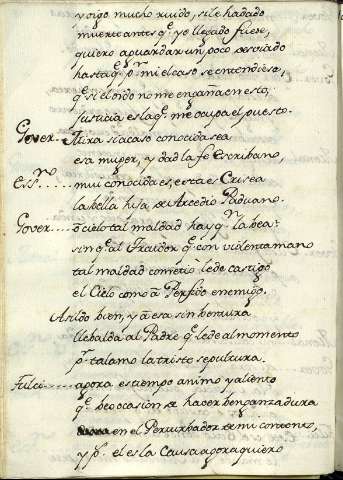 y oigo mucho ruido, si le ha dado
muerte antes q.e yo llegado fuese,
quiero aguardar un poco desviado
hasta q.e p.r mi el caso se entendiese,
q.e si el oido no me engaña en esto,
Justicia es la q.e me ocupa el puesto.
Gover. Mira si acaso conocida sea
esa muger, y dad la fe Escribano,
Ess.no mui conocida es, esta es Crisea
la bella hija de Arcedio Paduano.
Gover o cielo tal maldad hay q.n la bea
sin q.e al Traidor q.e con violenta mano
tal maldad cometio le de castigo
el Cielo como a Perfido enemigo.
Asildo bien, y a esa sin bentura
llebalda al Padre q.e le de al momento
p.r talamo la triste sepultura.
Fulci agora es tiempo animo y aliento
q.e beo ocasion de hacer benganza dura
en el Perturbador de mi contento,
y p.s el es la Causa agora quiero